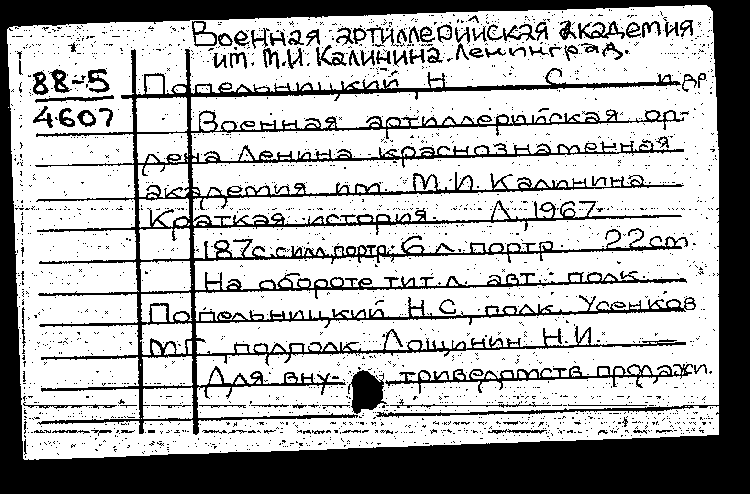 Военная артиллерийская академия
им. М.И. Калинина. Ленинград.
88-5
Попельницкий, Н С и др
4607
Военная артиллерийская ор-
дена Ленина краснознаменная
академия им. М.И. Калинина.
Краткая история. Л., 1967.
187 с. с илл., портр; 6 л. портр. 22 cm
На обороте тит. л. авт.: полк.
Попельницкий Н.С., полк. Усенков
М.Г., подполк. Лощинин Н.И.
Для вну- триведомств продажи.